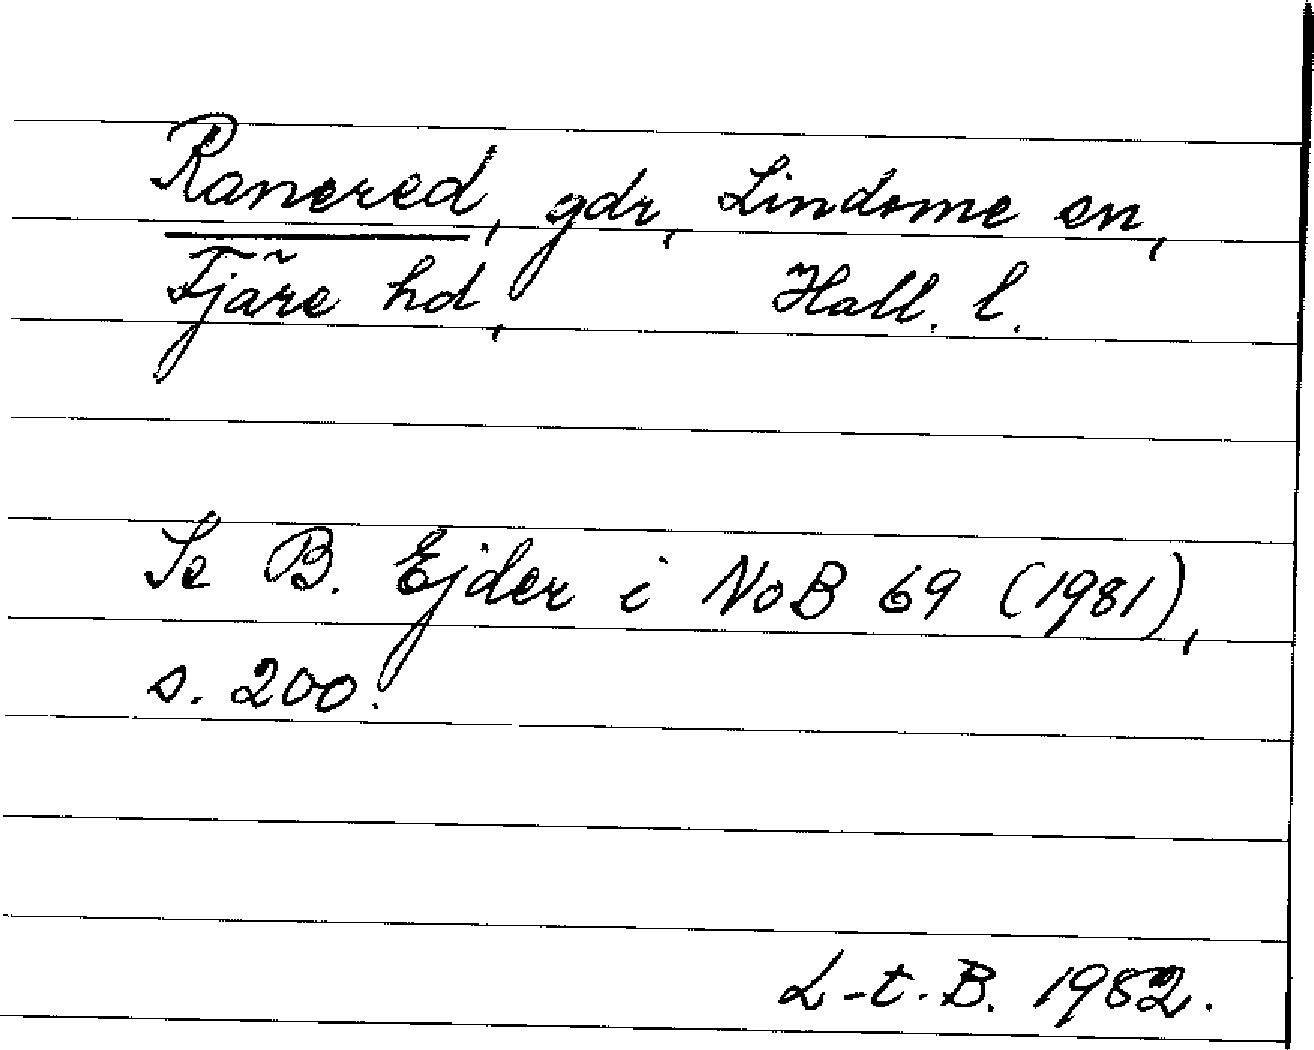 Ranered, gdr, Lindome sn,
Fjäre hd, Hall. l.
Se B. Ejder i NoB 69 (1981),
s. 200.
L-t. B. 1982.